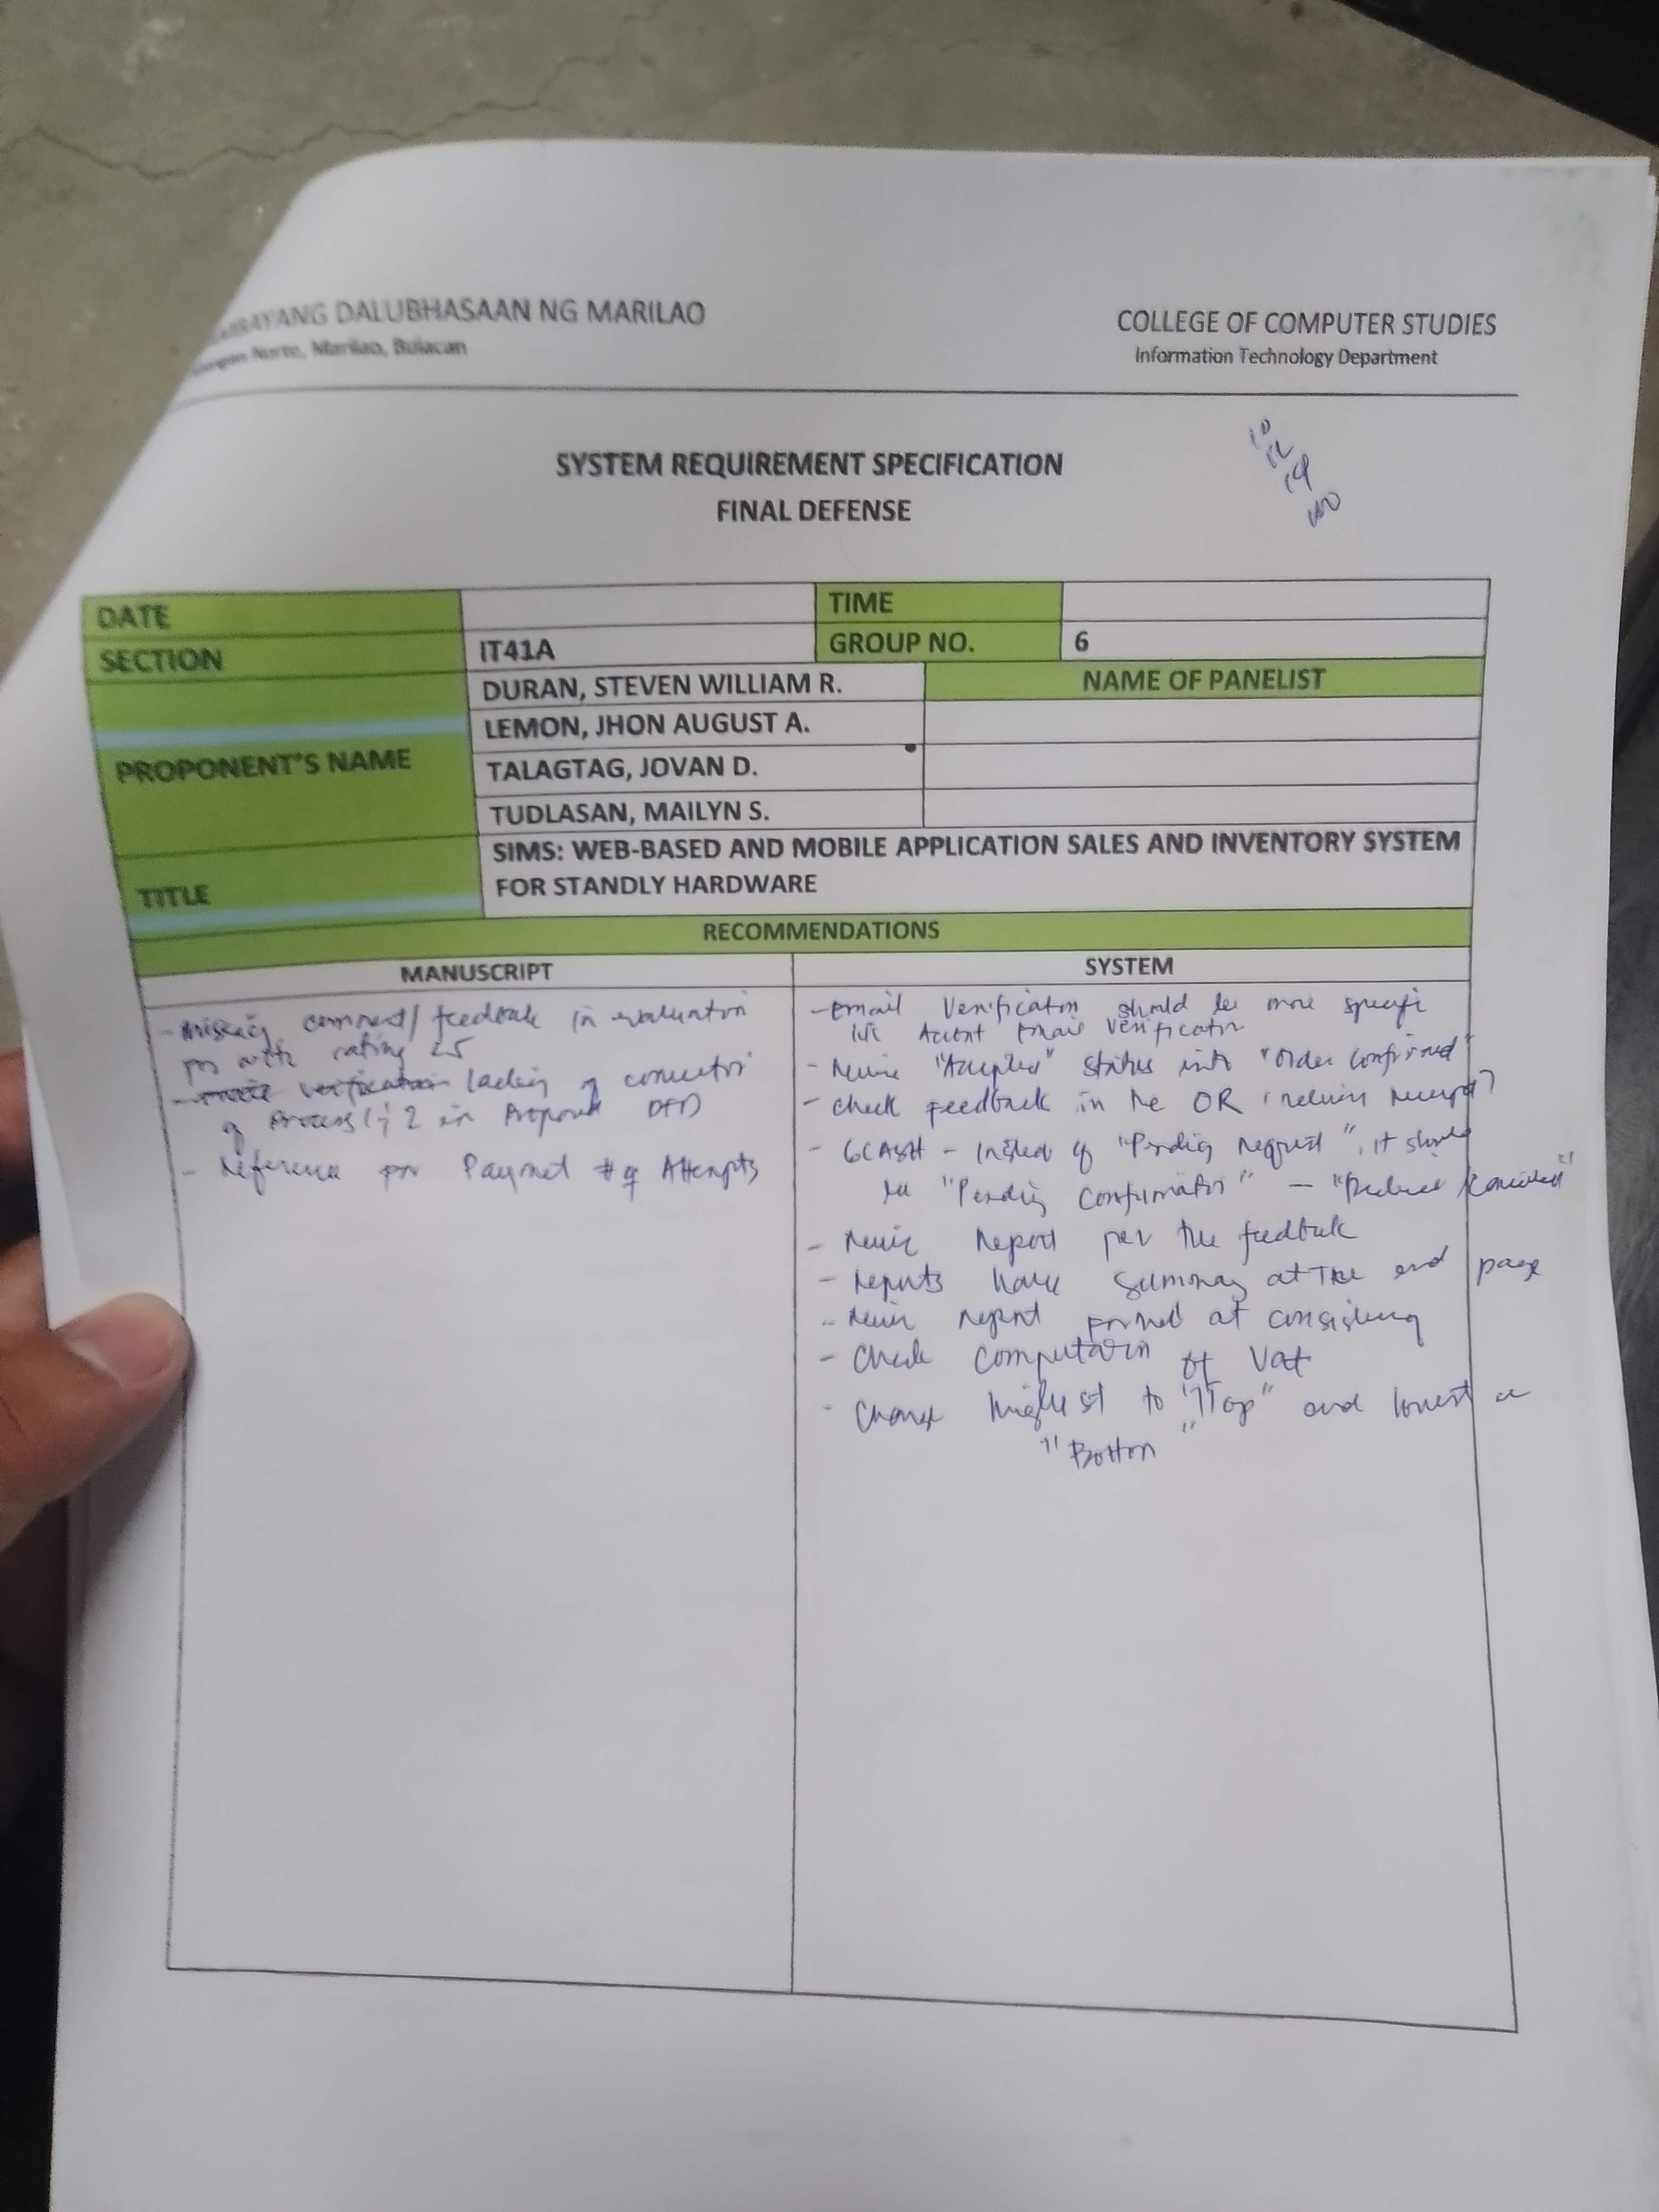 DALUBHASAAN NG MARILAO
Norte, Marilao, Bulacan
COLLEGE OF COMPUTER STUDIES
Information Technology Department
SYSTEM REQUIREMENT SPECIFICATION
FINAL DEFENSE
DATE
TIME
SECTION
IT41A
GROUP NO.
6
PROPONENT'S NAME
DURAN, STEVEN WILLIAM R.
NAME OF PANELIST
LEMON, JHON AUGUST A.
TALAGTAG, JOVAN D.
TUDLASAN, MAILYN S.
TITLE
SIMS: WEB-BASED AND MOBILE APPLICATION SALES AND INVENTORY SYSTEM
FOR STANDLY HARDWARE
RECOMMENDATIONS
MANUSCRIPT
- comment/feedback in evaluation
with rating
lacking of
of Process 1 & 2 in Proposed DFD
- Reference for Payment # of Attempts
SYSTEM
- Email Verification should be more specific
Email Verification
- "Accepted" status into "Order Confirmed"
- check feedback in the OR
- GCASH - Instead of "Pending Request", it should
be "Pending Confirmation" -
- Report per the feedback
- Reports have summary at the end page
- report at
- Check computation of Vat
- Change highest to "Top" and lowest
"Bottom"